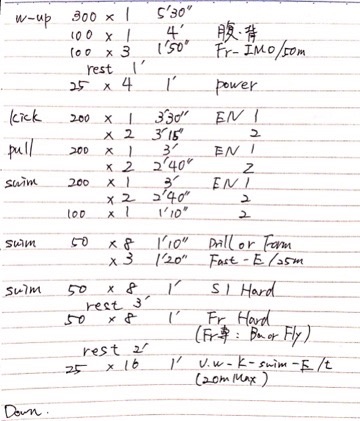 w-up 300 × 1 5'30"
100 × 1 4' 腹・背
100 × 3 1'50" Fr-IMO/50m
rest 1'
25 × 4 1' power
kick 200 × 1 3'30" EN 1
× 2 3'15" 2
pull 200 × 1 3' EN 1
× 2 2'40" 2
swim 200 × 1 3' EN 1
× 2 2'40" 2
100 × 1 1'10" 2
swim 50 × 8 1'10" Drill or Form
× 3 1'20" Fast-E/25m
swim 50 × 8 1' S1 Hard
rest 3'
50 × 8 1' Fr Hard
(Fr専: Ba or Fly)
rest 2'
25 × 16 1' U.w-K-swim-E/t
(20m Max)
Down.